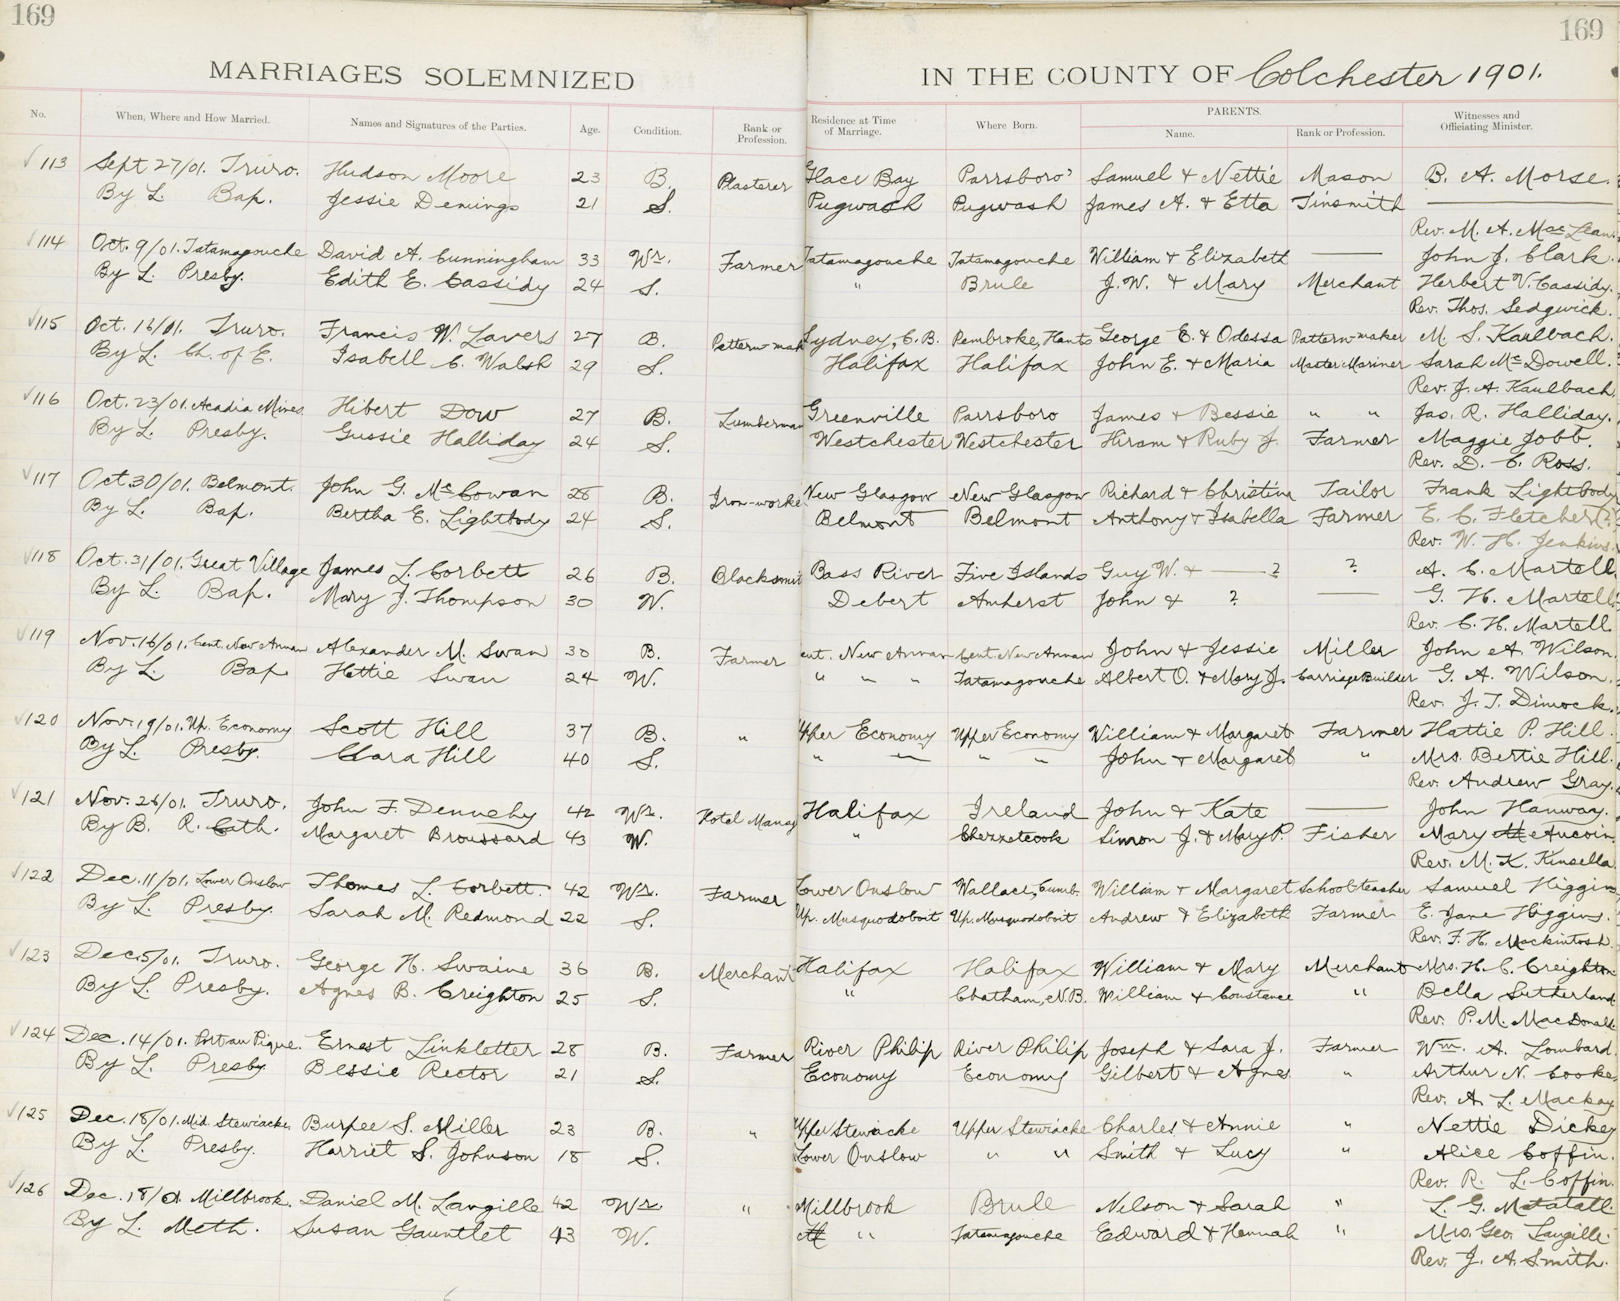 169 169
MARRIAGES SOLEMNIZED IN THE COUNTY OF Colchester 1901.
No. When, Where and How Married. Names and Signatures of the Parties. Age. Condition. Rank or Profession. Residence at Time of Marriage. Where Born. PARENTS. Name. Rank or Profession. Witnesses and Officiating Minister.
113 Sept 27/01. Truro. Hudson Moore 23 B. Plasterer Glace Bay Parrsboro' Samuel & Nettie Mason B. A. Morse.
By L. Bap. Jessie Demings 21 S. Pugwash Pugwash James A. & Etta Tinsmith
Rev. M. A. MacLean.
114 Oct. 9/01. Tatamagouche David A. Cunningham 33 Wr. Farmer Tatamagouche Tatamagouche William & Elizabeth — John J. Clark.
By L. Presby. Edith E. Cassidy 24 S. " Brule J. W. & Mary Merchant Herbert V. Cassidy.
Rev. Thos. Sedgwick.
115 Oct. 16/01. Truro. Francis W. Lavers 27 B. Pattern-mak Sydney, C.B. Pembroke, Hants George E. & Odessa Pattern-maker M. S. Kaulbach.
By L. Ch. of E. Isabell C. Walsh 29 S. Halifax Halifax John E. & Maria Master Mariner Sarah McDowell.
Rev. J. A. Kaulbach
116 Oct. 23/01. Acadia Mines Hibert Dow 27 B. Lumberman Greenville Parrsboro James & Bessie " " Jas. R. Halliday.
By L. Presby. Gussie Halliday 24 S. Westchester Westchester Hiram & Ruby J. Farmer Maggie Jobb.
Rev. D. C. Ross.
117 Oct 30/01. Belmont. John G. McCowan 28 B. Iron-worke New Glasgow New Glasgow Richard & Christina Tailor Frank Lightbody
By L. Bap. Bertha E. Lightbody 24 S. Belmont Belmont Anthony & Isabella Farmer E. C. Fletcher(?)
Rev. W. H. Jenkins.
118 Oct. 31/01. Great Village James L. Corbett 26 B. Blacksmit Bass River Five Islands Guy W. & — ? ? A. C. Martell.
By L. Bap. Mary J. Thompson 30 W. Debert Amherst John & ? — G. H. Martell.
Rev. C. H. Martell.
119 Nov. 16/01. Cent. New Annan Alexander M. Swan 30 B. Farmer Cent. New Annan Cent. New Annan John & Jessie Miller John A. Wilson.
By L. Bap. Hettie Swan 24 W. " " " Tatamagouche Albert O. & Mary J. Carriage Builder G. A. Wilson.
Rev. J. T. Dimock.
120 Nov. 19/01. Up. Economy Scott Hill 37 B. " Upper Economy Upper Economy William & Margaret Farmer Hattie P. Hill.
By L. Presby. Clara Hill 40 S. " " " " John & Margaret " Mrs. Bertie Hill.
Rev. Andrew Gray.
121 Nov. 26/01. Truro. John F. Dennehy 42 Wr. Hotel Manag Halifax Ireland John & Kate — John Hanway.
By B. R. Cath. Margaret Broussard 43 W. " Chezzetcook Simon J. & Mary P. Fisher Mary Aucoin
Rev. M. K. Kinsella
122 Dec. 11/01. Lower Onslow Thomas L. Corbett. 42 Wr. Farmer Lower Onslow Wallace, Cumb. William & Margaret School teacher Samuel Higgins
By L. Presby. Sarah M. Redmond 22 S. Up. Musquodoboit Up. Musquodoboit Andrew & Elizabeth Farmer E. Jane Higgins.
Rev. F. H. Mackintosh.
123 Dec. 5/01. Truro. George H. Swaine 36 B. Merchant Halifax Halifax William & Mary Merchant Mrs. H. C. Creighton
By L. Presby. Agnes B. Creighton 25 S. " Chatham, N.B. William & Constance " Bella Sutherland
Rev. P. M. MacDonald.
124 Dec. 14/01. Port au Pique. Ernest Linkletter 28 B. Farmer River Philip River Philip Joseph & Sara J. Farmer Wm. A. Lombard.
By L. Presby Bessie Rector 21 S. Economy Economy Gilbert & Agnes " Arthur N. Cooke
Rev. A. L. Mackay
125 Dec. 18/01. Mid. Stewiacke. Burpee S. Miller 23 B. " Upper Stewiacke Upper Stewiacke Charles & Annie " Nettie Dickey
By L. Presby. Harriet S. Johnson 18 S. Lower Onslow " " Smith & Lucy " Alice Coffin.
Rev. R. L. Coffin.
126 Dec. 18/01. Millbrook. Daniel M. Langille 42 Wr. " Millbrook Brule Nelson & Sarah " L. G. Matatall.
By L. Meth. Susan Gauntlet 43 W. " Tatamagouche Edward & Hannah " Mrs. Geo. Langille.
Rev. J. A. Smith.